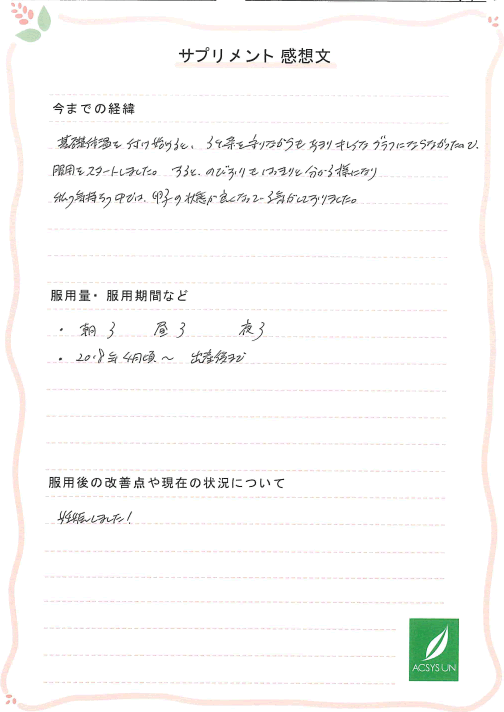 サプリメント 感想文
今までの経緯
基礎体温を付け始めると、3ケ条を守りながらもあまりキレイなグラフにならなかったので、
服用をスタートしました。すると、のびおりもはっきりと分かる様になり
私の気持ちの中では、卵子の状態が良くなっている気がしておりました。
服用量・服用期間など
・ 朝 3 昼 3 夜 3
・ 2018年4月頃 〜 出産後まで
服用後の改善点や現在の状況について
妊娠しました!
ACSYSUN